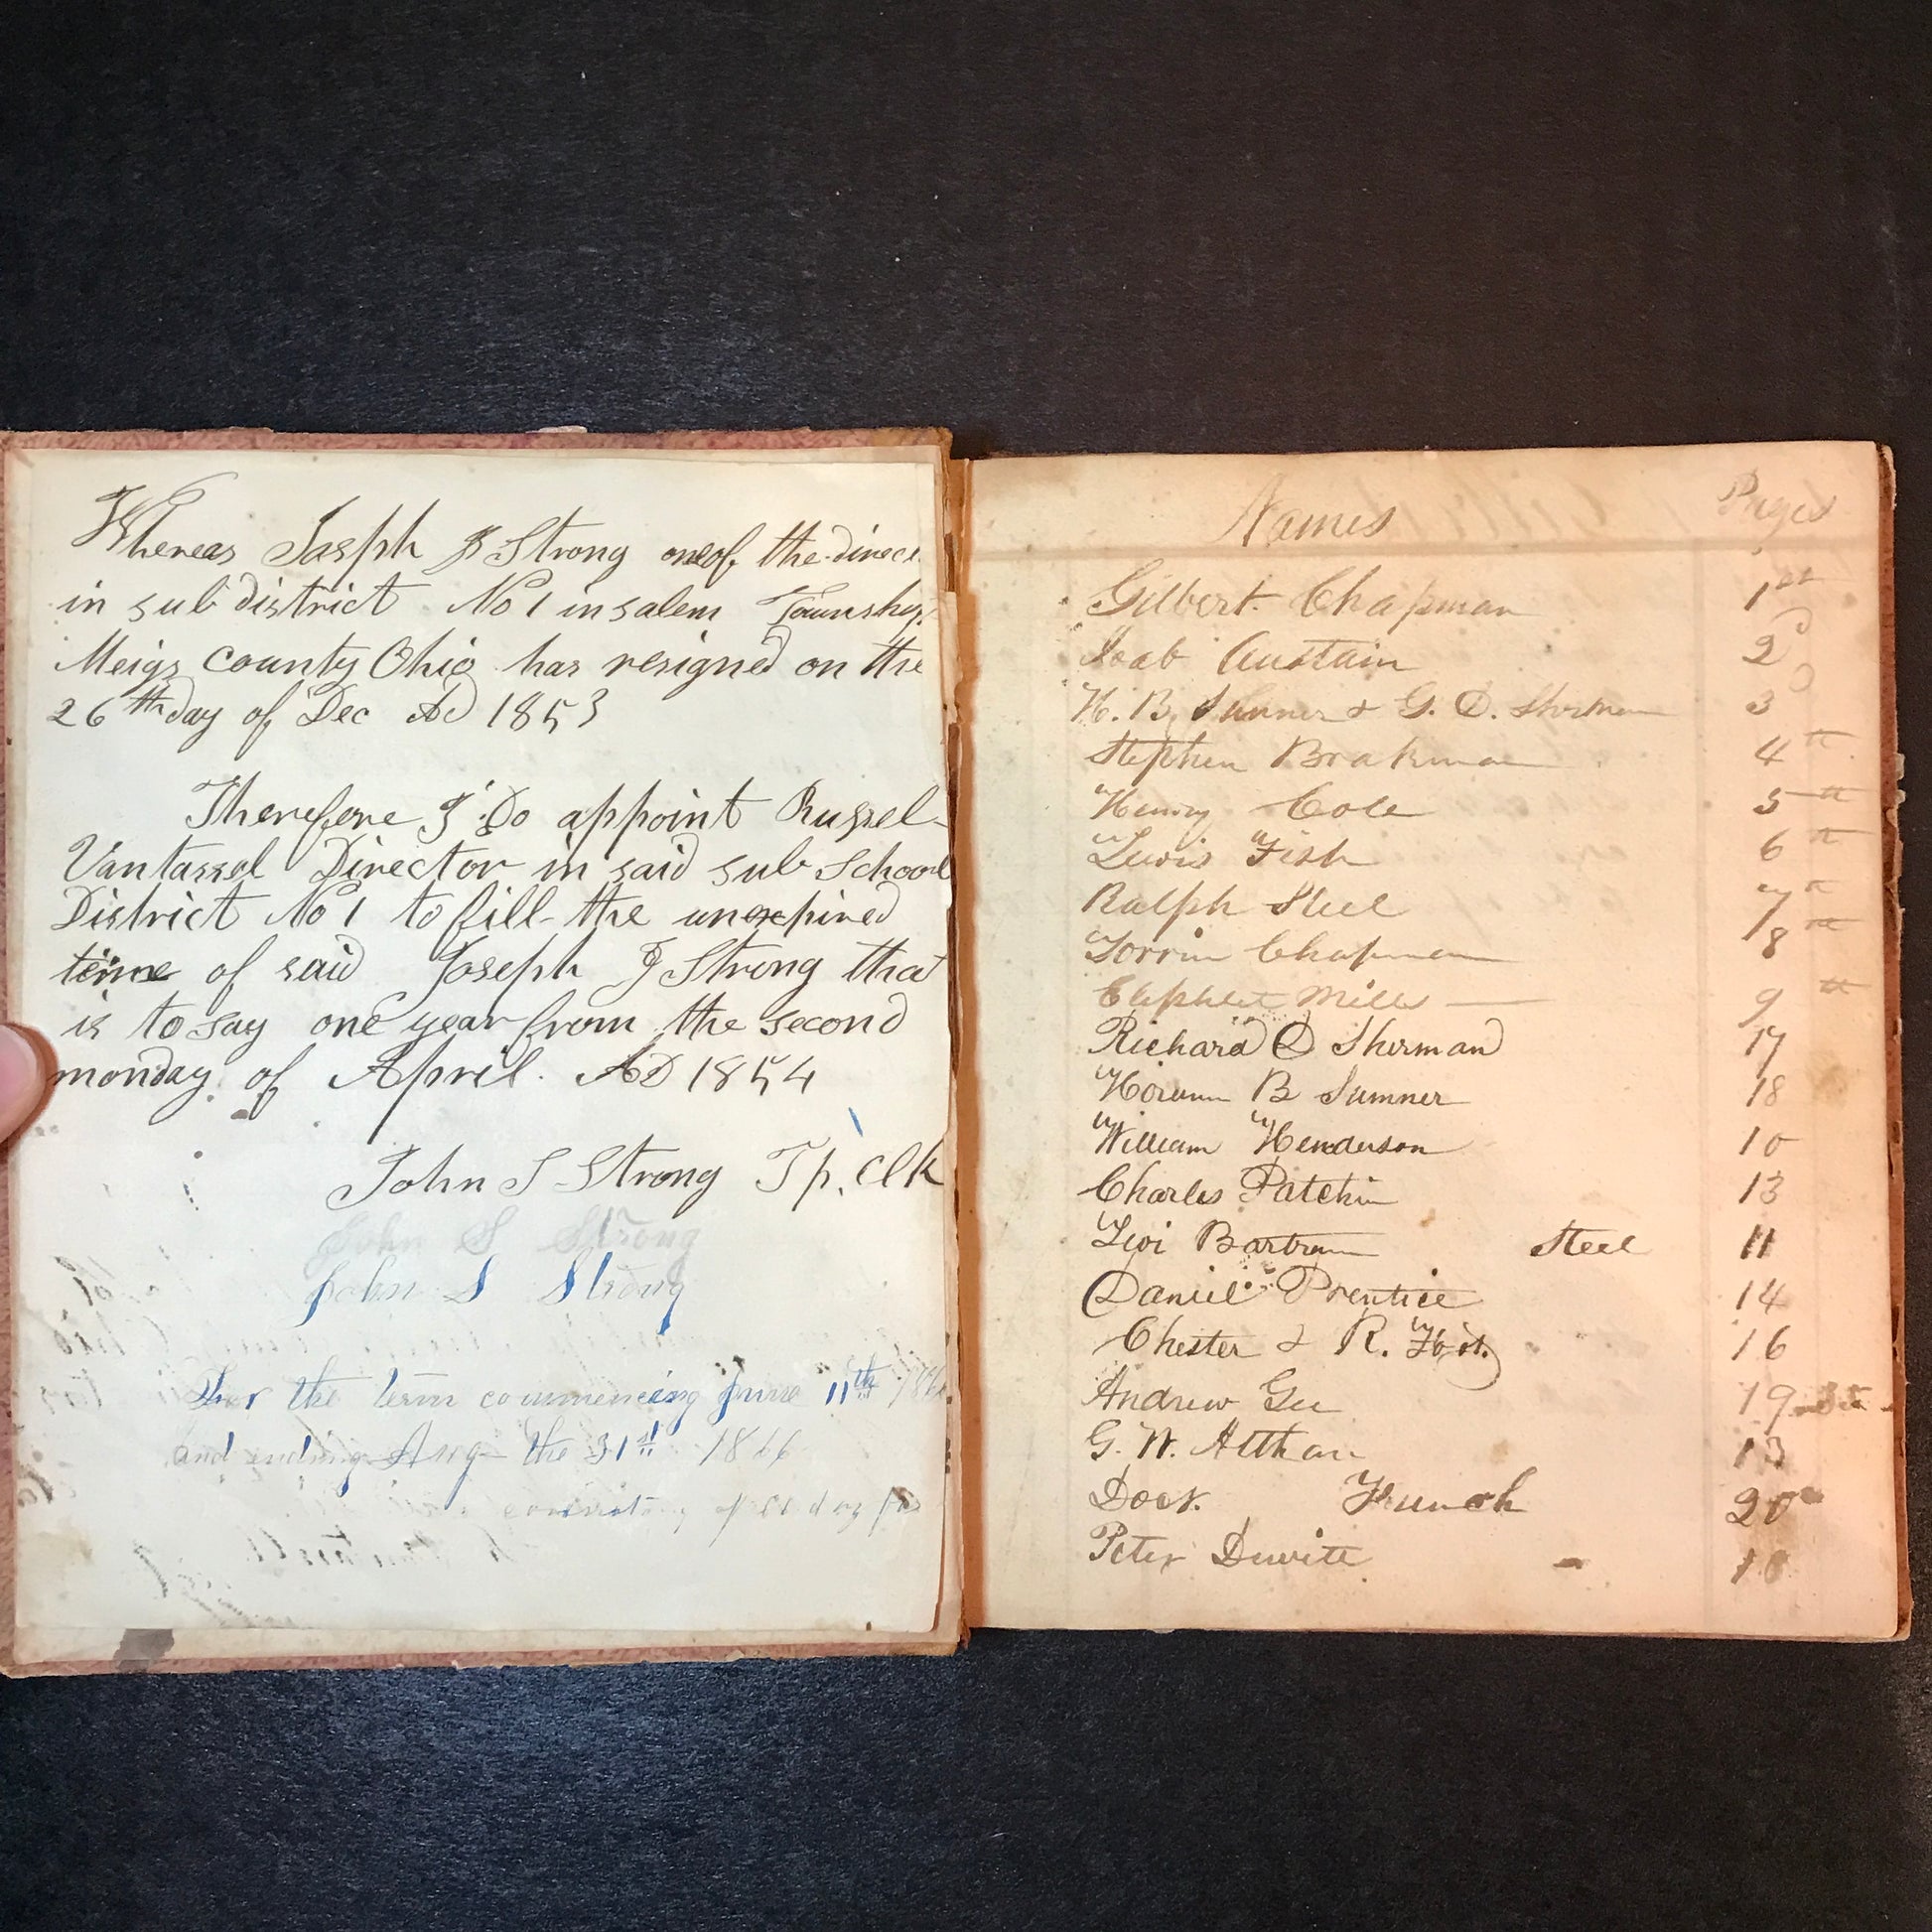 Whereas Jasph J Strong one of the direct
in sub district No 1 in salem Township
Meigs county Ohio has resigned on the
26th day of Dec AD 1853
Therefore I Do appoint Russel
Vantassel Director in said sub School
District No 1 to fill the unexpired
time of said Joseph J Strong that
is to say one year from the second
monday of April. AD 1854
John S Strong Tp. Clk
John S Strong
John S Strong
For the term commencing June 11th
and ending Aug the 31st 1866
of day
Names Pages
Gilbert Chapman 1st
Joab Austain 2d
H. B. Sumner & G. D. Sherman 3d
Stephen Brakman 4th
Henry Cole 5th
Lewis Fish 6th
Ralph Steel 7th
Torrin Chapman 8th
Eliphlet Mills 9th
Richard D Sherman 17
Horamn B Sumner 18
William Henderson 10
Charles Patchin 13
Levi Bartram Steel 11
Daniel Prentice 14
Chester & R. 16
Andrew Gee 19
G. W. Althan 13
Doct. French 20
Peter Dewitt 18